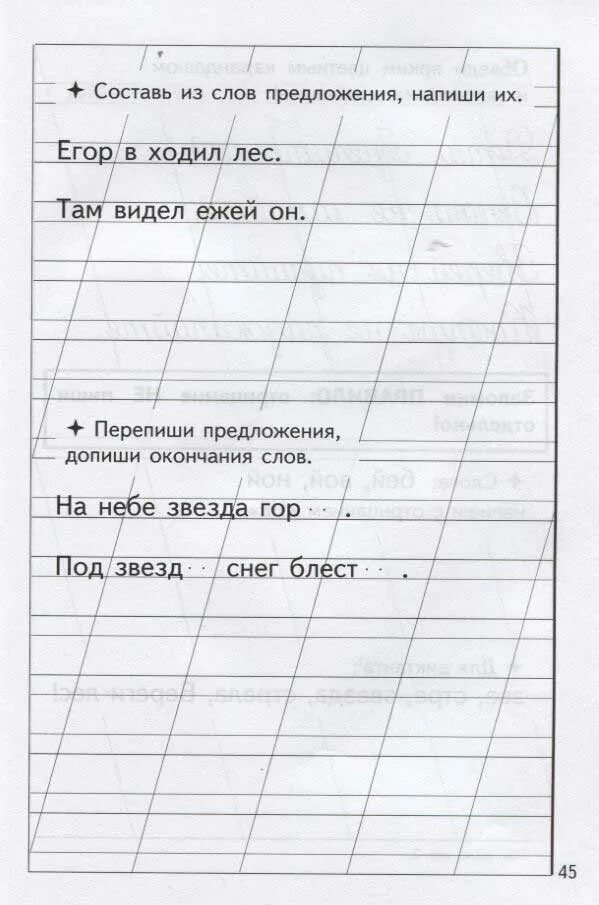 ✦ Составь из слов предложения, напиши их.
Егор в ходил лес.
Там видел ежей он.
✦ Перепиши предложения,
допиши окончания слов.
На небе звезда гор · · .
Под звезд · · снег блест · · .
45